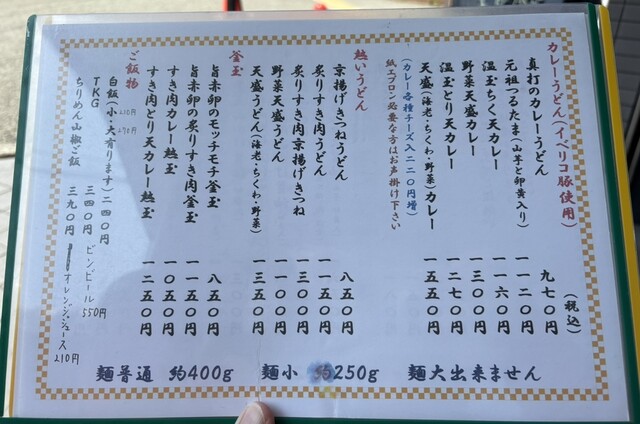 カレーうどん(イベリコ豚使用)
(税込)
真打のカレーうどん 九七〇円
元祖つるたま(山芋と卵黄入り) 一一二〇円
温玉ちく天カレー 一一六〇円
野菜天盛カレー 一三〇〇円
温玉とり天カレー 一二七〇円
天盛(海老・ちくわ・野菜)カレー 一五五〇円
(カレー各種チーズ入二二〇円増)
紙エプロン必要な方はお声掛け下さい
熱いうどん
京揚げきつねうどん 八五〇円
炙りすき肉うどん 一一五〇円
炙りすき肉京揚げきつね 一三〇〇円
野菜天盛うどん 一一〇〇円
天盛うどん(海老・ちくわ・野菜) 一三五〇円
釜玉
旨赤卵のモッチモチ釜玉 八五〇円
旨赤卵の炙りすき肉釜玉 一一五〇円
すき肉カレー熱玉 一〇五〇円
すき肉とり天カレー熱玉 一二五〇円
ご飯物
白飯(小・大有ります) 二四〇円
210円 270円
TKG 三四〇円
ちりめん山椒ご飯 三九〇円
ビンビール 550円
オレンジジュース 210円
麺普通 約400g 麺小 約250g 麺大出来ません